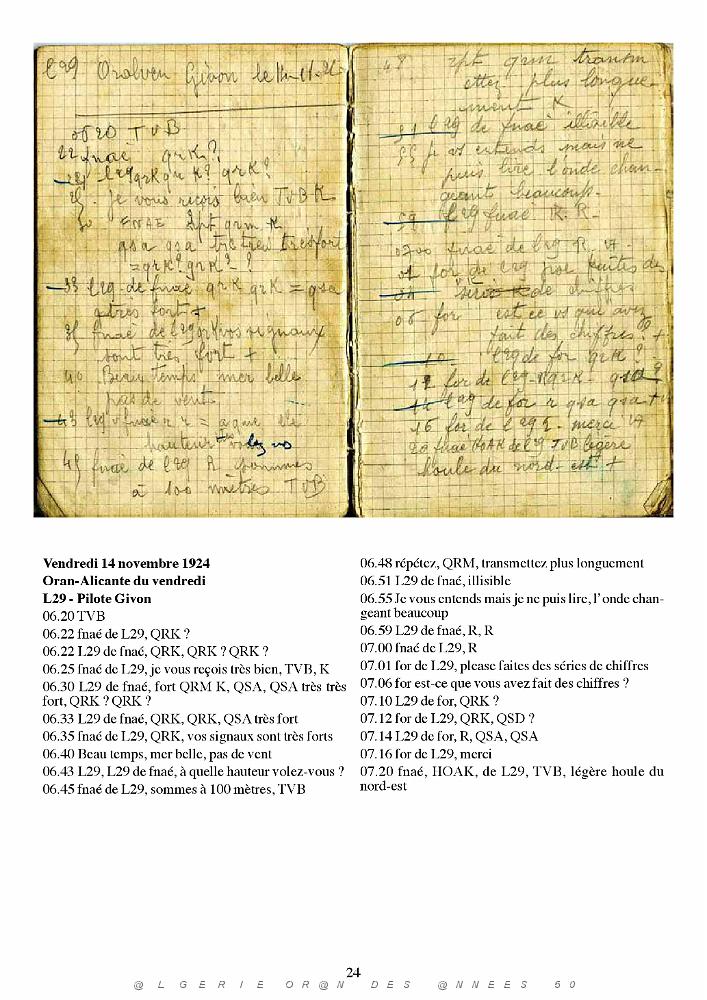 L29 Oralven Givon le 14-11-24
0620 TVB
22 fnaé qrK?
24 L29 qrK qrK? qrK?
25 - Je vous reçois bien TVB K
30 FNAE Rpt qrm K
qsa qsa très très très fort
= qrK? qrK? = ?
33 L29 de fnaé qrK qrK = qsa
très fort +
35 fnaé de L29 qrK vos signaux
sont très fort +
40 Beau temps mer belle
pas de vent
43 L29 fnaé r r = a que lle
hauteur
45 fnaé de L29 R sommes
à 100 mètres TVB
48 rpt qrm transm
ettez plus longue-
ment K
51 L29 de fnaé illisible
55 je vs entends mais ne
puis lire l'onde chan-
geant beaucoup-
59 L29 fnaé R. R-
0700 fnaé de L29 R
01 for de L29 faites des
séries de chiffres
06 for est ce vs que avez
fait des chiffres? +
10 L29 de for qrK?
12 for de L29 qrK- qsd?
14 L29 de for r qsa qsa
16 for de L29 merci
20 fnaé HOAK de L29 TVB légère
houle du nord-est +
Vendredi 14 novembre 1924
Oran-Alicante du vendredi
L29 - Pilote Givon
06.20 TVB
06.22 fnaé de L29, QRK ?
06.22 L29 de fnaé, QRK, QRK ? QRK ?
06.25 fnaé de L29, je vous reçois très bien, TVB, K
06.30 L29 de fnaé, fort QRM K, QSA, QSA très très
fort, QRK ? QRK ?
06.33 L29 de fnaé, QRK, QRK, QSA très fort
06.35 fnaé de L29, QRK, vos signaux sont très forts
06.40 Beau temps, mer belle, pas de vent
06.43 L29, L29 de fnaé, à quelle hauteur volez-vous ?
06.45 fnaé de L29, sommes à 100 mètres, TVB
06.48 répétez, QRM, transmettez plus longuement
06.51 L29 de fnaé, illisible
06.55 Je vous entends mais je ne puis lire, l'onde chan-
geant beaucoup
06.59 L29 de fnaé, R, R
07.00 fnaé de L29, R
07.01 for de L29, please faites des séries de chiffres
07.06 for est-ce que vous avez fait des chiffres ?
07.10 L29 de for, QRK ?
07.12 for de L29, QRK, QSD ?
07.14 L29 de for, R, QSA, QSA
07.16 for de L29, merci
07.20 fnaé, HOAK, de L29, TVB, légère houle du
nord-est
24
@ L G E R I E O R @ N D E S @ N N E E S 5 0